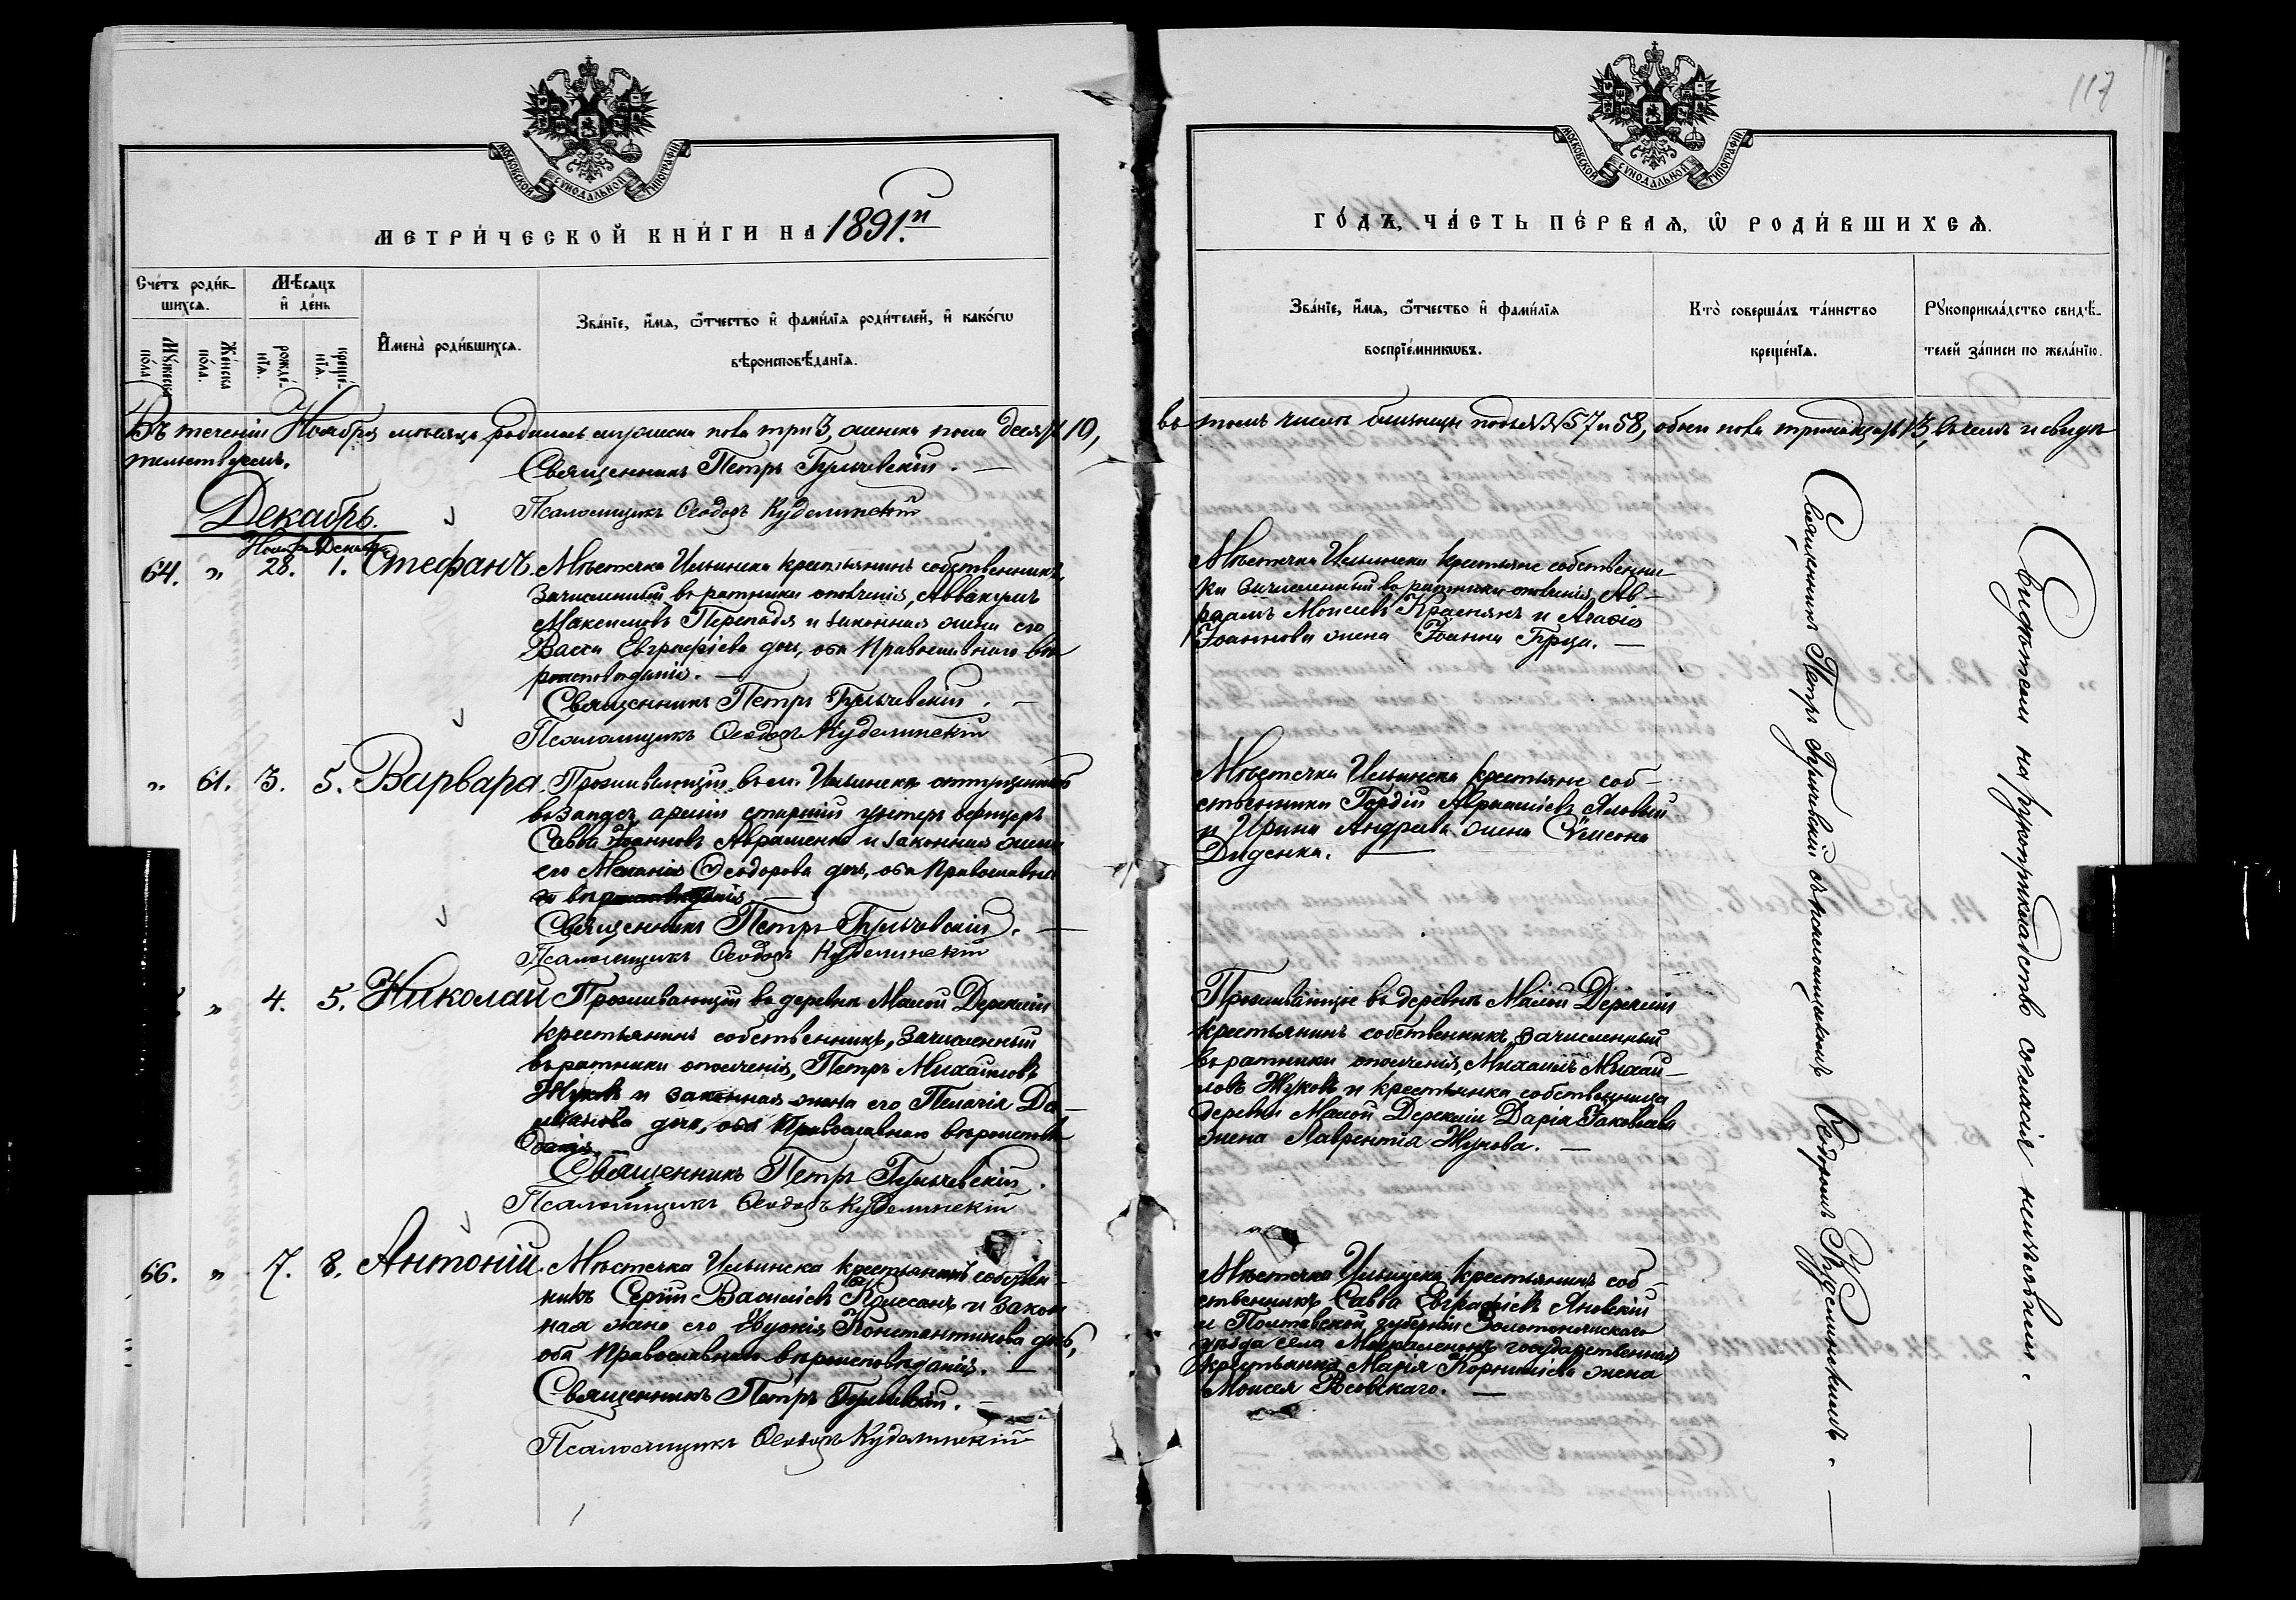 117
МОСКОВСКОЙ СУНОДАЛЬНОЙ ТИПОГРАФІИ
МЕТРИ́ЧЕСКОЙ КНИ́ГИ НА 1891.й
Сче́тъ роди́вшихся.
Мѣ́сяцъ и҆ де́нь
И҆мена̀ роди́вшихся.
Зва́нїе, и҆́мя, ѻ҆́тчество и҆ фами́лїя роди́телей, и҆ како́гѡ
вѣроисповѣ́данїя.
Мꙋ́жеска по́ла
Же́нска по́ла.
рожде́нїя.
креще́нїя.
Въ теченіи Ноября мѣсяца родилось мужеска пола три 3, женска пола десять 10,
тельствуемъ.
Священникъ Петръ
Псаломщикъ Ѳеодоръ Куделинскій
Декабрь.
Ноября Декабря
64. „ 28. 1. Стефанъ. Мѣстечка Ильинска крестьянинъ собственникъ,
зачисленный въ ратники ополченія, Аввакумъ
Максимовъ Перепадя и законная жена его
Васса Евграфіева дочь, оба Православнаго вѣ
роисповѣданія. —
Священникъ Петръ
Псаломщикъ Ѳеодоръ Куделинскій
„ 61. 3. 5. Варвара. Проживающій въ м. Ильинскѣ
въ запасъ арміи старшій унтеръ офицеръ
Савва Іоанновъ Авраменко и законная жена
его Меланія Ѳеодорова дочь, оба Православна
го вѣроисповѣданія. —
Священникъ Петръ
Псаломщикъ Ѳеодоръ Куделинскій
„ 4. 5. Николай Проживающій въ деревнѣ Малой Дерекліи
крестьянинъ собственникъ, зачисленный
въ ратники ополченія, Петръ Михаиловъ
Жуковъ и законная жена его Пелагія Да-
міанова дочь, оба Православнаго вѣроисповѣ
данія. —
Священникъ Петръ
Псаломщикъ Ѳеодоръ Куделинскій
66. „ 7. 8. Антоній. Мѣстечка Ильинска крестьянинъ собствен-
никъ Сергій Василіевъ и закон
ная жена его Евдокія Константинова дочь,
оба Православнаго вѣроисповѣданія. —
Священникъ Петръ
Псаломщикъ Ѳеодоръ Куделинскій
МОСКОВСКОЙ СУНОДАЛЬНОЙ ТИПОГРАФІИ
ГО́ДЪ, ЧА́СТЬ ПЕ́РВАЯ, Ѡ҆ РОДИ́ВШИХСЯ.
Зва́нїе, и҆́мя, ѻ҆́тчество и҆ фами́лїя
воспрїе́мникѡвъ.
Кто̀ соверша́лъ та́инство
креще́нїя.
Рꙋкоприкла́дство свидѣ́телей за́писи по жела́нїю.
въ томъ числѣ близнецы подъ №№ 57 и 58, обоего пола тринадцать 13, въ чемъ и свидѣ
Мѣстечка Ильинска крестьяне собственни-
ки зачисленный въ ратники ополченія Ав-
раамъ Моисеевъ и Агафія
Іоаннова жена Іоанна
Мѣстечка Ильинска крестьяне соб-
ственники Гордій Яловый
и Ирина Андреева жена Сѵмеона
Диденка. —
Проживающіе въ деревнѣ Малой Дерекліи
крестьянинъ собственникъ, зачисленный
въ ратники ополченія, Михаилъ Михаи-
ловъ Жуковъ и крестьянка собственница
деревни Малой Дерекліи Дарія Іаковлева
жена Лаврентія Жукова. —
Мѣстечка Ильинска крестьянинъ соб-
ственникъ Савва Евграфіевъ Яновскій
и Полтавской губерніи Золотоношскаго
уѣзда села государственная
крестьянка Марія Корниліева жена
Моисея
Священникъ Петръ съ псаломщикомъ Ѳеодоромъ Куделинскимъ. —
Свидѣтели на рукоприкладство согласія неизъявили. —